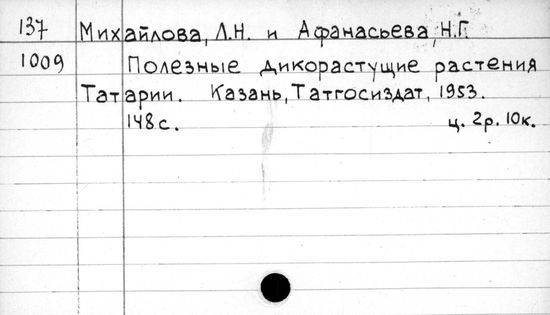 137 Михайлова, Л.Н. и Афанасьева, Н.Г.
1009 Полезные дикорастущие растения
Татарии. Казань, Татгосиздат, 1953.
148 с. ц. 2р. 10к.